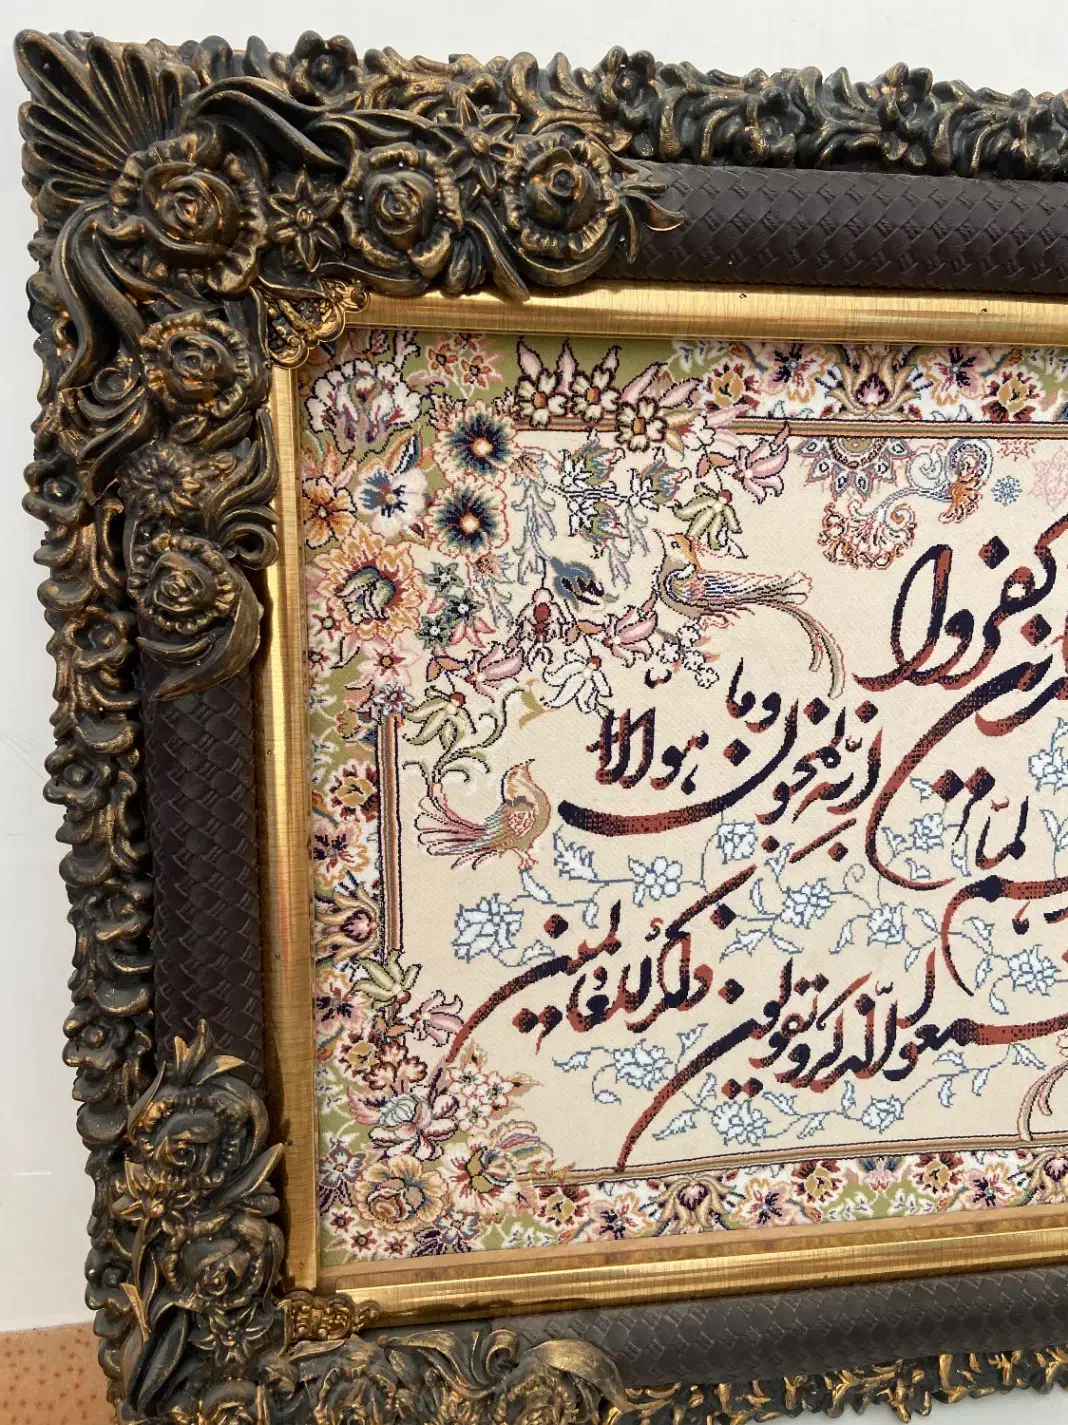 كفروا
لمّا
سمعوا الذّكر و یقولون
انّه لمجنون و ما هو الا
ذکرٌ للعالمین